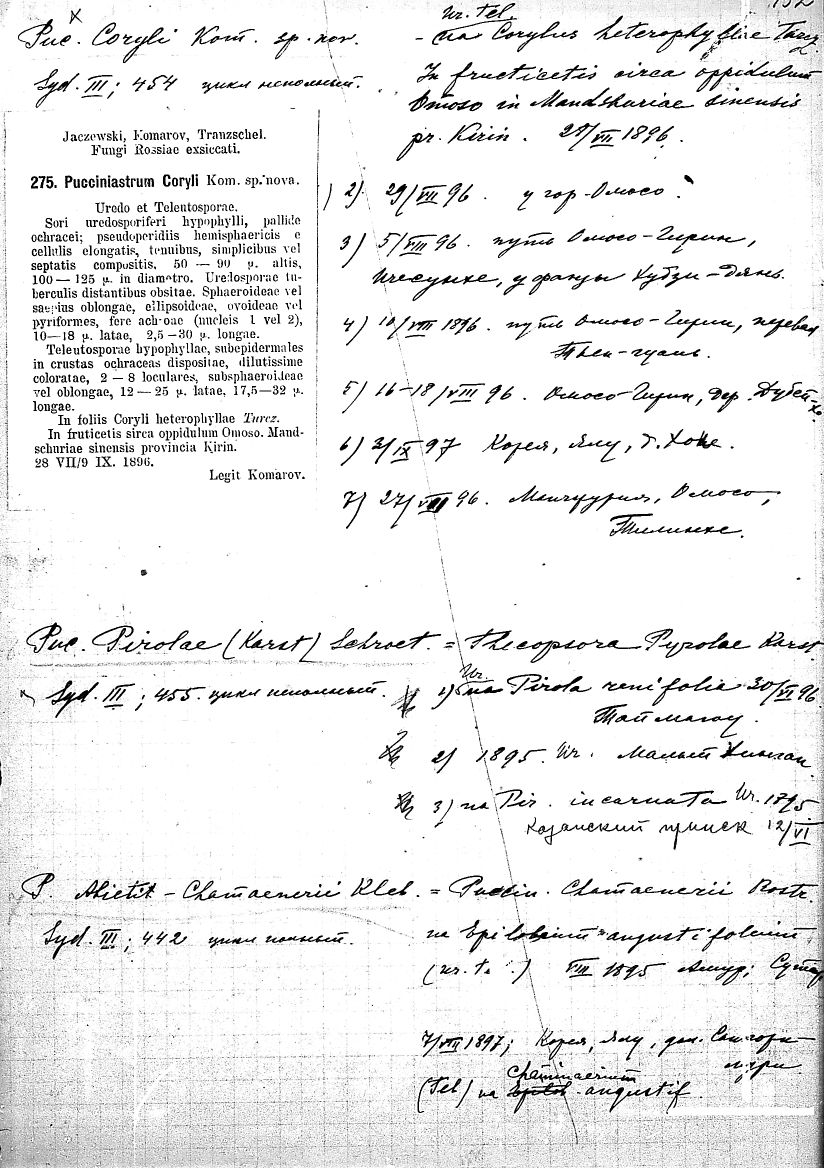 132
Puc. Coryli Kom. sp. nov.
Syd. III; 454 цикл неполный.
Ur. tel
- на Corylus heterophyllae Turcz
In fructicetis circa oppidulum
Omoso in Mandshuriae sinensis
pr. Kirin. 28/VII 1896.
Jaczewski, Komarov, Tranzschel.
Fungi Rossiae exsiccati.
275. Pucciniastrum Coryli Kom. sp. nova.
Uredo et Teleutosporae.
Sori uredosporiferi hypophylli, pallide
ochracei; pseudoperidiis hemisphaericis e
cellulis elongatis, tenuibus, simplicibus vel
septatis compositis, 50 — 90 μ. altis,
100 — 125 μ. in diametro. Uredosporae tu-
berculis distantibus obsitae. Sphaeroideae vel
saepius oblongae, ellipsoideae, ovoideae vel
pyriformes, fere achroae (nucleis 1 vel 2),
10—18 μ. latae, 2,5—30 μ. longae.
Teleutosporae hypophyllae, subepidermales
in crustas ochraceas dispositae, dilutissime
coloratae, 2 — 8 loculares, subsphaeroideae
vel oblongae, 12 — 25 μ. latae, 17,5—32 μ.
longae.
In foliis Coryli heterophyllae Turcz.
In fruticetis sirca oppidulum Omoso. Mand-
schuriae sinensis provincia Kirin.
28 VII/9 IX. 1896.
Legit Komarov.
2) 29/VII 96. у гор. Омосо.
3) 5/VIII 96. путь Омосо-Гирин,
у фанзы Хубзи-дянь.
4) 10/VIII 1896. путь Омосо-Гирин, перевал
5) 16-18/VIII 96. Омосо-Гирин, дер.
6) 3/IX 97 Корея, Ялу,
7) 27/VIII 96. Манчжурия, Омосо,
Puc. Pirolae (Karst) Schroet. = Thecopsora Pyrolae Karst.
Syd. III; 455. цикл неполный.
1) Ur. на Pirola renifolia 30/VI 96
2) 1895. Ur. Малый Хинган.
3) на Pir. incarnata Ur. 1895
Казанский прииск 12/VI
P. Abieti - Chamaenerii Kleb. = Puccin. Chamaenerii Rostr.
Syd. III; 442 цикл полный.
на Epilobium angustifolium
(ur. t.) VIII 1895 Амур;
7/VIII 1897; Корея, Ялу, дол.
(Tel) на Epilob Chaminaerium angustif.